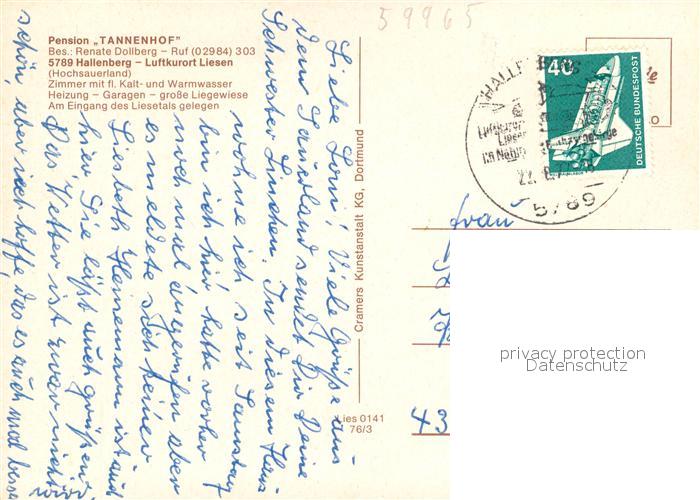 59965
Pension „TANNENHOF"
Bes.: Renate Dollberg – Ruf (02984) 303
5789 Hallenberg – Luftkurort Liesen
(Hochsauerland)
Zimmer mit fl. Kalt- und Warmwasser
Heizung – Garagen – große Liegewiese
Am Eingang des Liesetals gelegen
Liebe Loni! Viele Grüße aus
dem Sauerland sendet Dir Deine
Schwester Linchen. In diesem Haus
wohne ich seit Samstag
bin ich hier hatte vorher
noch mal angerufen aber
es meldete sich keiner
Liesbeth Heinemann ist auch
hier. Sie läßt auch grüßen.
Das Wetter ist zwar nicht
schön, aber ich hoffe, das es auch mal besser
wird.
Cramers Kunstanstalt KG, Dortmund
Lies 0141
76/3
40
DEUTSCHE BUNDESPOST
5789
Frau
43
privacy protection
Datenschutz